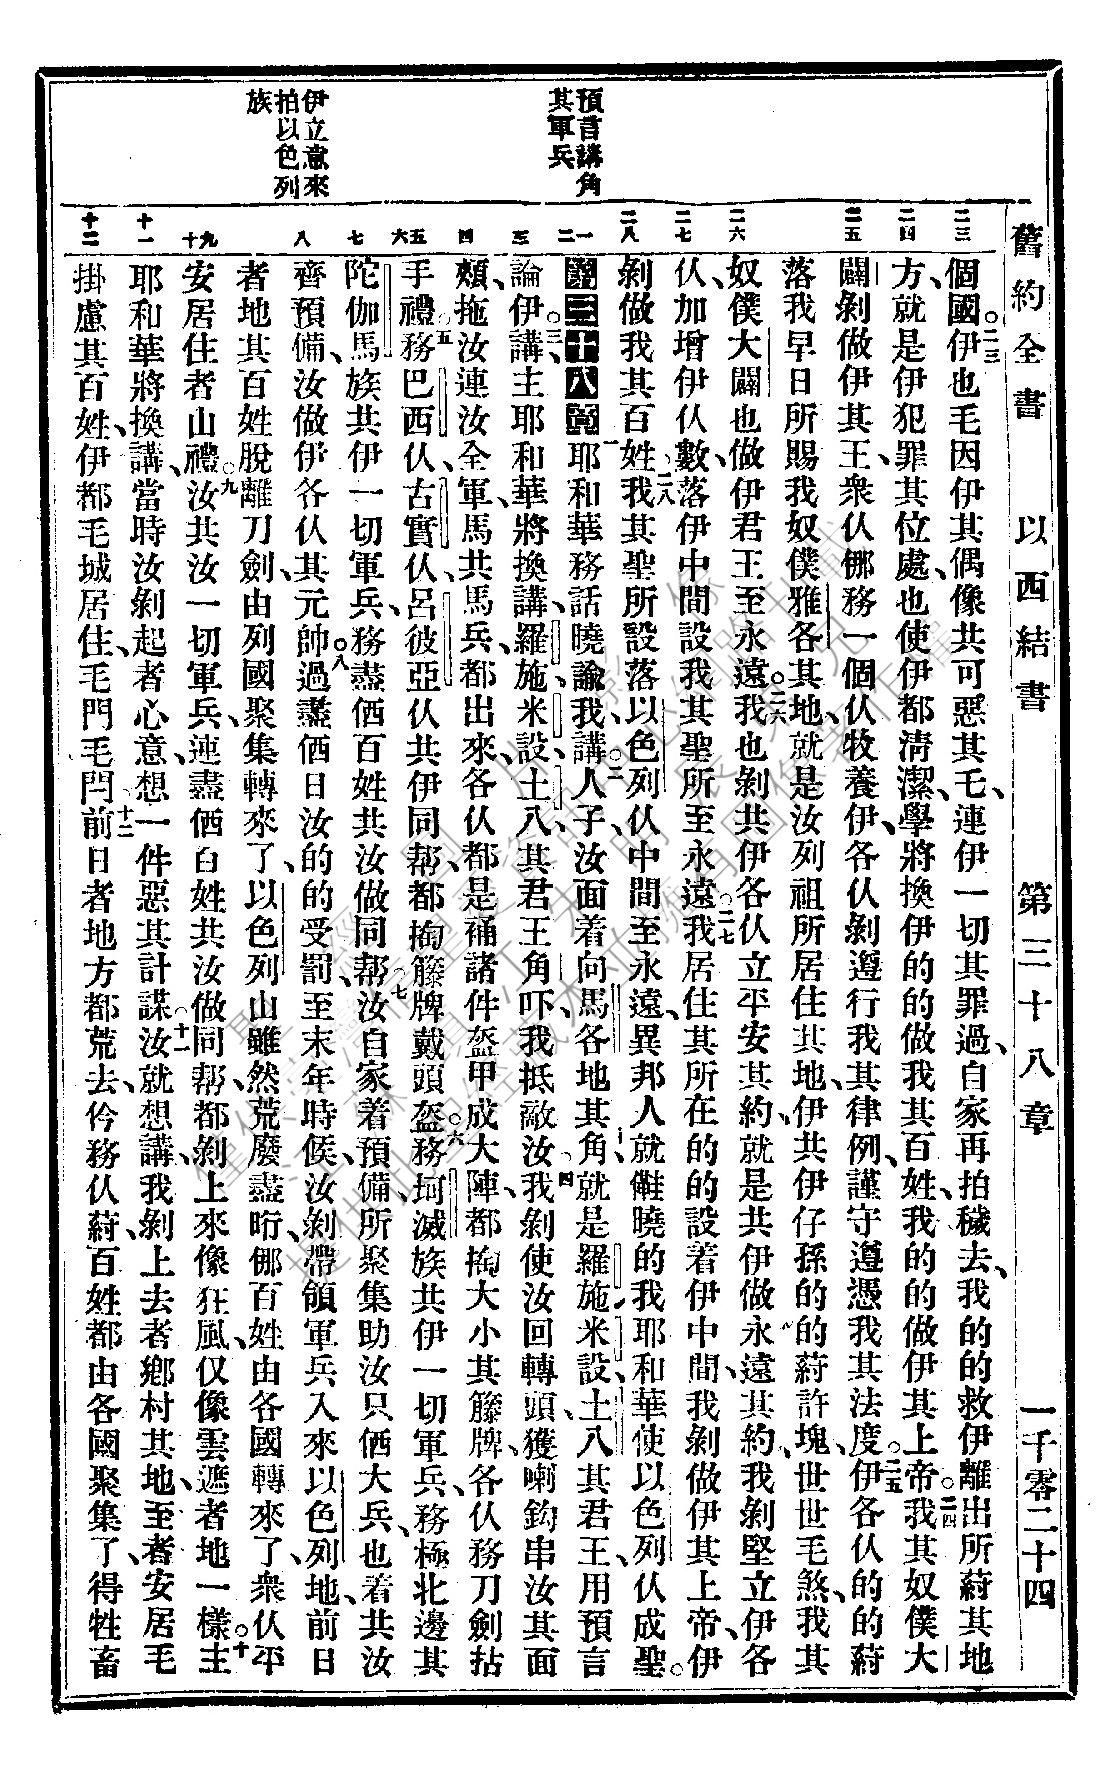 舊約全書 以西結書 第三十八章 一千零二十四
預言講角
其軍兵
伊立意來
拍以色列
族
二三
二四
二五
二六
二七
二八
一
二
三
四
五
六
七
八
九
十
十一
十二
個國。二三伊也毛因伊其偶像共可惡其乇、連伊一切其罪過、自家再拍穢去、我的的救伊離出所葑其地
方、就是伊犯罪其位處、也使伊都淸潔、學將換伊的的做我其百姓、我的的做伊其上帝。二四我其奴僕大
闢剝做伊其王、衆仫㑚務一個仫牧養伊、各仫剝遵行我其律例、謹守遵憑我其法度。二五伊各仫的的葑
落我早日所賜我奴僕雅各其地、就是汝列祖所居住其地、伊共伊仔孫的的葑許塊、世世毛煞、我其
奴僕大闢也做伊君王至永遠。二六我也剝共伊各仫立平安其約、就是共伊做永遠其約、我剝堅立伊各
仫、加增伊仫數、落伊中間設我其聖所至永遠。二七我居住其所在的的設着伊中間、我剝做伊其上帝、伊
剝做我其百姓。二八我其聖所設落以色列仫中間至永遠、異邦人就雊曉的我耶和華使以色列仫成聖。
第三十八章 一耶和華務話曉諭我講。二人子、汝面着向馬各地其角、就是羅施米設土八其君王、用預言
論伊講。三主耶和華將換講、羅施米設土八其君王角吓、我抵敵汝。四我剝使汝回轉頭、獲喇鈎串汝其面
頰、拖汝連汝全軍馬共馬兵、都出來、各仫都是補諸件盔甲成大陣、都掏大小其籐牌、各仫務刀劍拈
手禮。五務巴西仫、古實仫、呂彼亞仫共伊同帮、都掏籐牌戴頭盔。六務坷滅族共伊一切軍兵、務極北邊其
陀伽馬族共伊一切軍兵、務盡価百姓共汝做同帮。七汝自家着預備、所聚集助汝只価大兵、也着共汝
齊預備、汝做伊各仫其元帥。八過盡価日汝的的受罰、至末年時候、汝剝帶領軍兵入來以色列地、前日
者地其百姓脫離刀劍、由列國聚集轉來了、以色列山雖然荒廢盡𣍐、㑚百姓由各國轉來了、衆仫平
安居住者山禮。九汝共汝一切軍兵、連盡価百姓共汝做同帮、都剝上來像狂風、仅像雲遮者地一樣。十主
耶和華將換講、當時汝剝起者心意、想一件惡其計謀。十一汝就想講、我剝上去者鄉村其地、至者安居毛
掛慮其百姓、伊都毛城居住、毛門毛閂。十二前日者地方都荒去、仱務仫葑、百姓都由各國聚集了、得牲畜